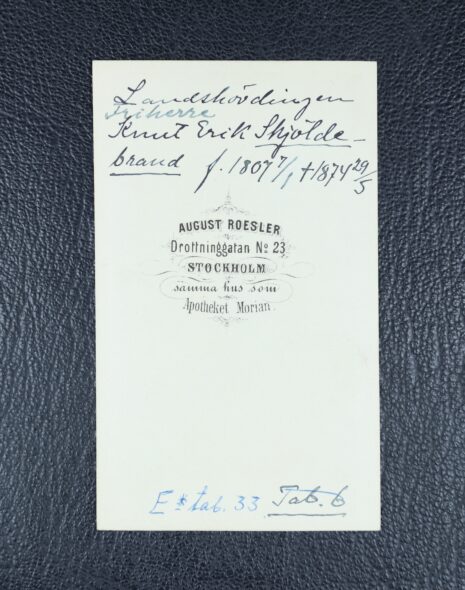 Landshövdingen
Friherre
Knut Erik Skjölde-
brand f. 1807 7/1 † 1874 29/5
AUGUST ROESLER
Drottninggatan No 23
STOCKHOLM
samma hus som
Apotheket Morian.
tab. 33 Tab. 6